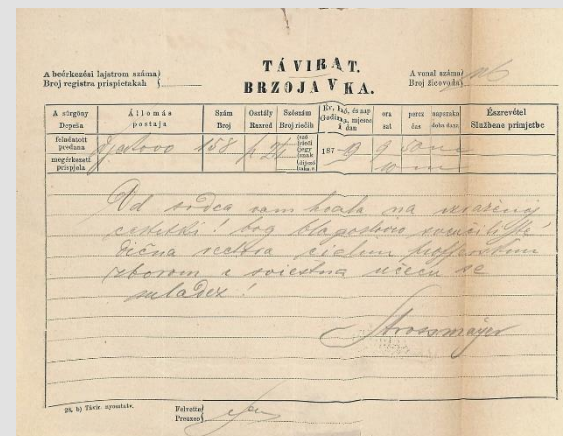 TÁVIRAT.
BRZOJAVKA.
A beérkezési lajstrom száma
Broj registra prispietakah
A vonal száma
Broj žicovoda
A sürgöny
Depeša
Állomás
postaja
Szám
Broj
Osztály
Razred
Szószám
Broj riečih
Év, hó, és nap
Godina, mjesec
i dan
óra
sat
percz
čas
napszaka
doba dana
Észrevétel
Službene primjetbe
feladatott
predana
Djakovo 158
187-9 9
megérkezett
prispjela
10 m
Od srdca vam hvala na izraženoj
čestitki! bog blagoslovio sveučilište
dična rectora cielim professorskim
zborom i sviestna učeću se
mladež!
Strossmayer
28. b) Távir. nyomtatv.
Felvette
Preuzeo